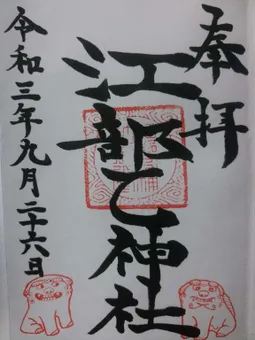 奉拝
江部乙神社
令和三年九月二十六日